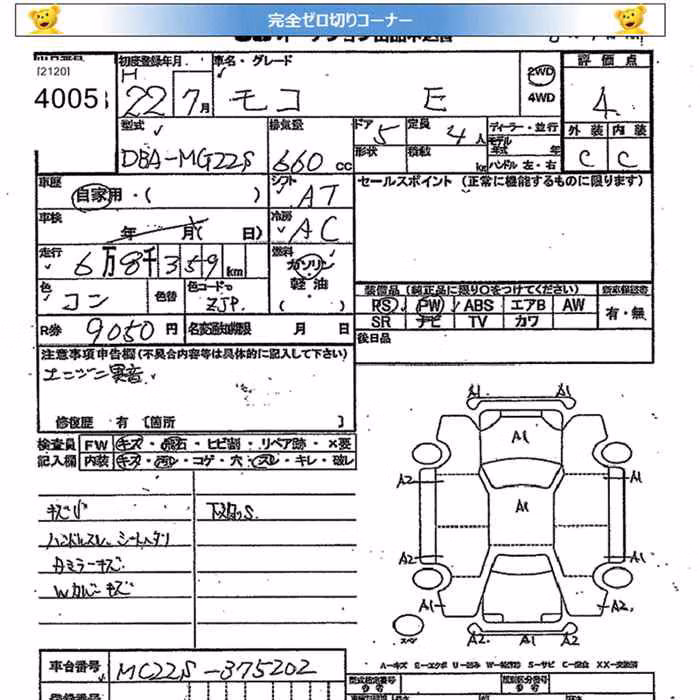 完全ゼロ切りコーナー
[2120]
初度登録年月
車名・グレード
2WD
4WD
評価点
4005
H
22 7月
モコ E
4
型式
排気量
ドア
定員
ディーラー・並行
外装 内装
DBA-MG22S
660cc
5
4人
モデル年式 年
C C
形状
積載
kg
ハンドル 左・右
車歴
自家用・( )
シフト
AT
セールスポイント (正常に機能するものに限ります)
車検
年 月( 日)
冷房
AC
走行
6万8千359km
燃料
ガソリン
軽油
( )
色
コン
色替
色コードNo
ZJP
装備品 (純正品に限り○をつけてください)
新車保証書
RS PW ABS エアB AW
有・無
SR ナビ TV カワ
R券 9050円
名変通知期限 月 日
後日品
注意事項申告欄(不具合内容等は具体的に記入して下さい)
エンジン異音
修復歴 有 〔箇所 〕
検査員
記入欄
FW キズ・飛石・ヒビ割・リペア跡・×要
内装 キズ・汚れ・コゲ・穴・スレ・キレ・破レ
キズ小
下メタルS
ハンドルスレ シートヘタリ
左ミラーキズ
Wカバーキズ
A1 A1
A1
A2 A1
A1
A2 A2
A1 A2
スペア A2 A2
A-キズ E-エクボ U-凹み W-補修跡 S-サビ C-腐食 XX-交換済
車台番号 MG22S-375202
型式指定番号
類別区分番号
登録番号